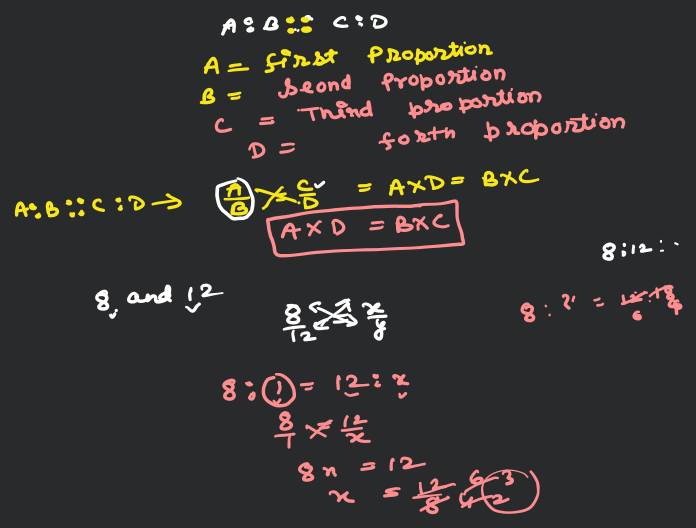 A:B:: C:D
A = first Proportion
B = Seond Proportion
C = Third proportion
D = forth proportion
A:B::C:D → A/B = C/D = A×D = B×C
A×D = B×C
8:12:
8, and 12
8/12 x/y
8: ? =
8:1 = 12:x
8/1 = 12/x
8x = 12
x = 12/8 6/4 3/2